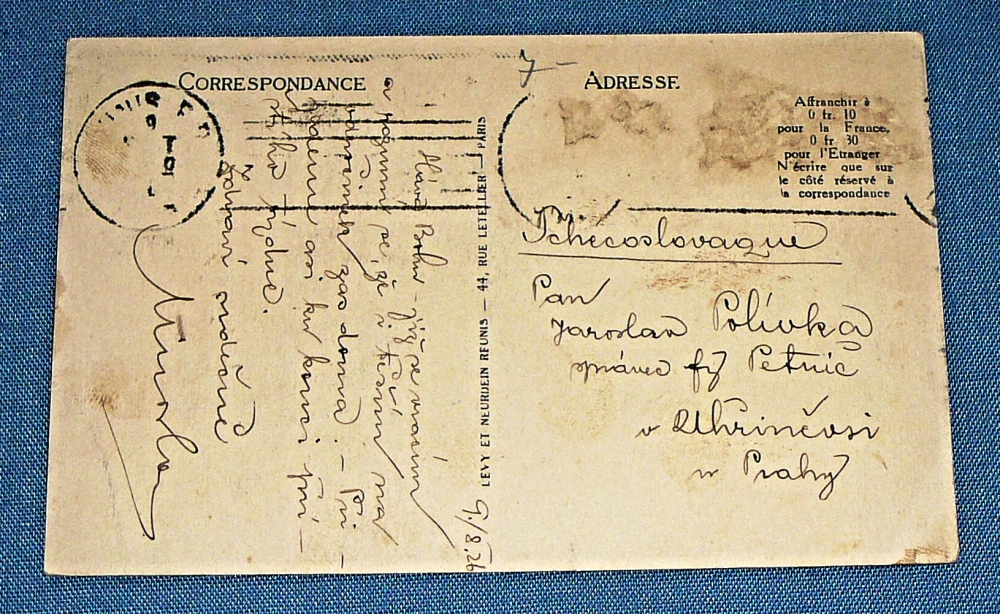 CORRESPONDANCE
ADRESSE
Affranchir à
0 fr. 10
pour la France,
0 fr 30
pour l'Etranger
N'écrire que sur
le côté réservé à
la correspondance
LEVY ET NEURDEIN REUNIS — 44, RUE LETELLIER — PARIS
9/8.26
Bohu – již se vracím
a se, že i
zas doma. – Při
asi ku konci pří-
štího týdne.
Zdraví srdečně
Tchécoslovaque
Pan
Jaroslav Polívka
správce fy Petnič
v Uhříněvsi
u Prahy